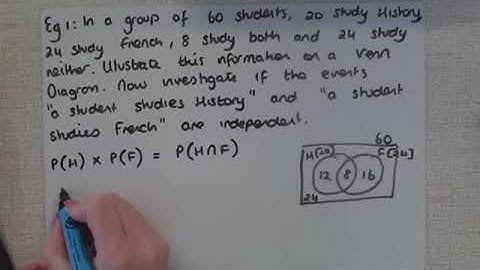 Eg 1: In a group of 60 students, 20 study History
24 study French, 8 study both and 24 study
neither. Illustrate this information on a Venn
Diagram. Now investigate if the events
"a student studies History" and "a student
studies French" are independent.
P(H) × P(F) = P(H∩F)
60
H[20] F[24]
12 8 16
24